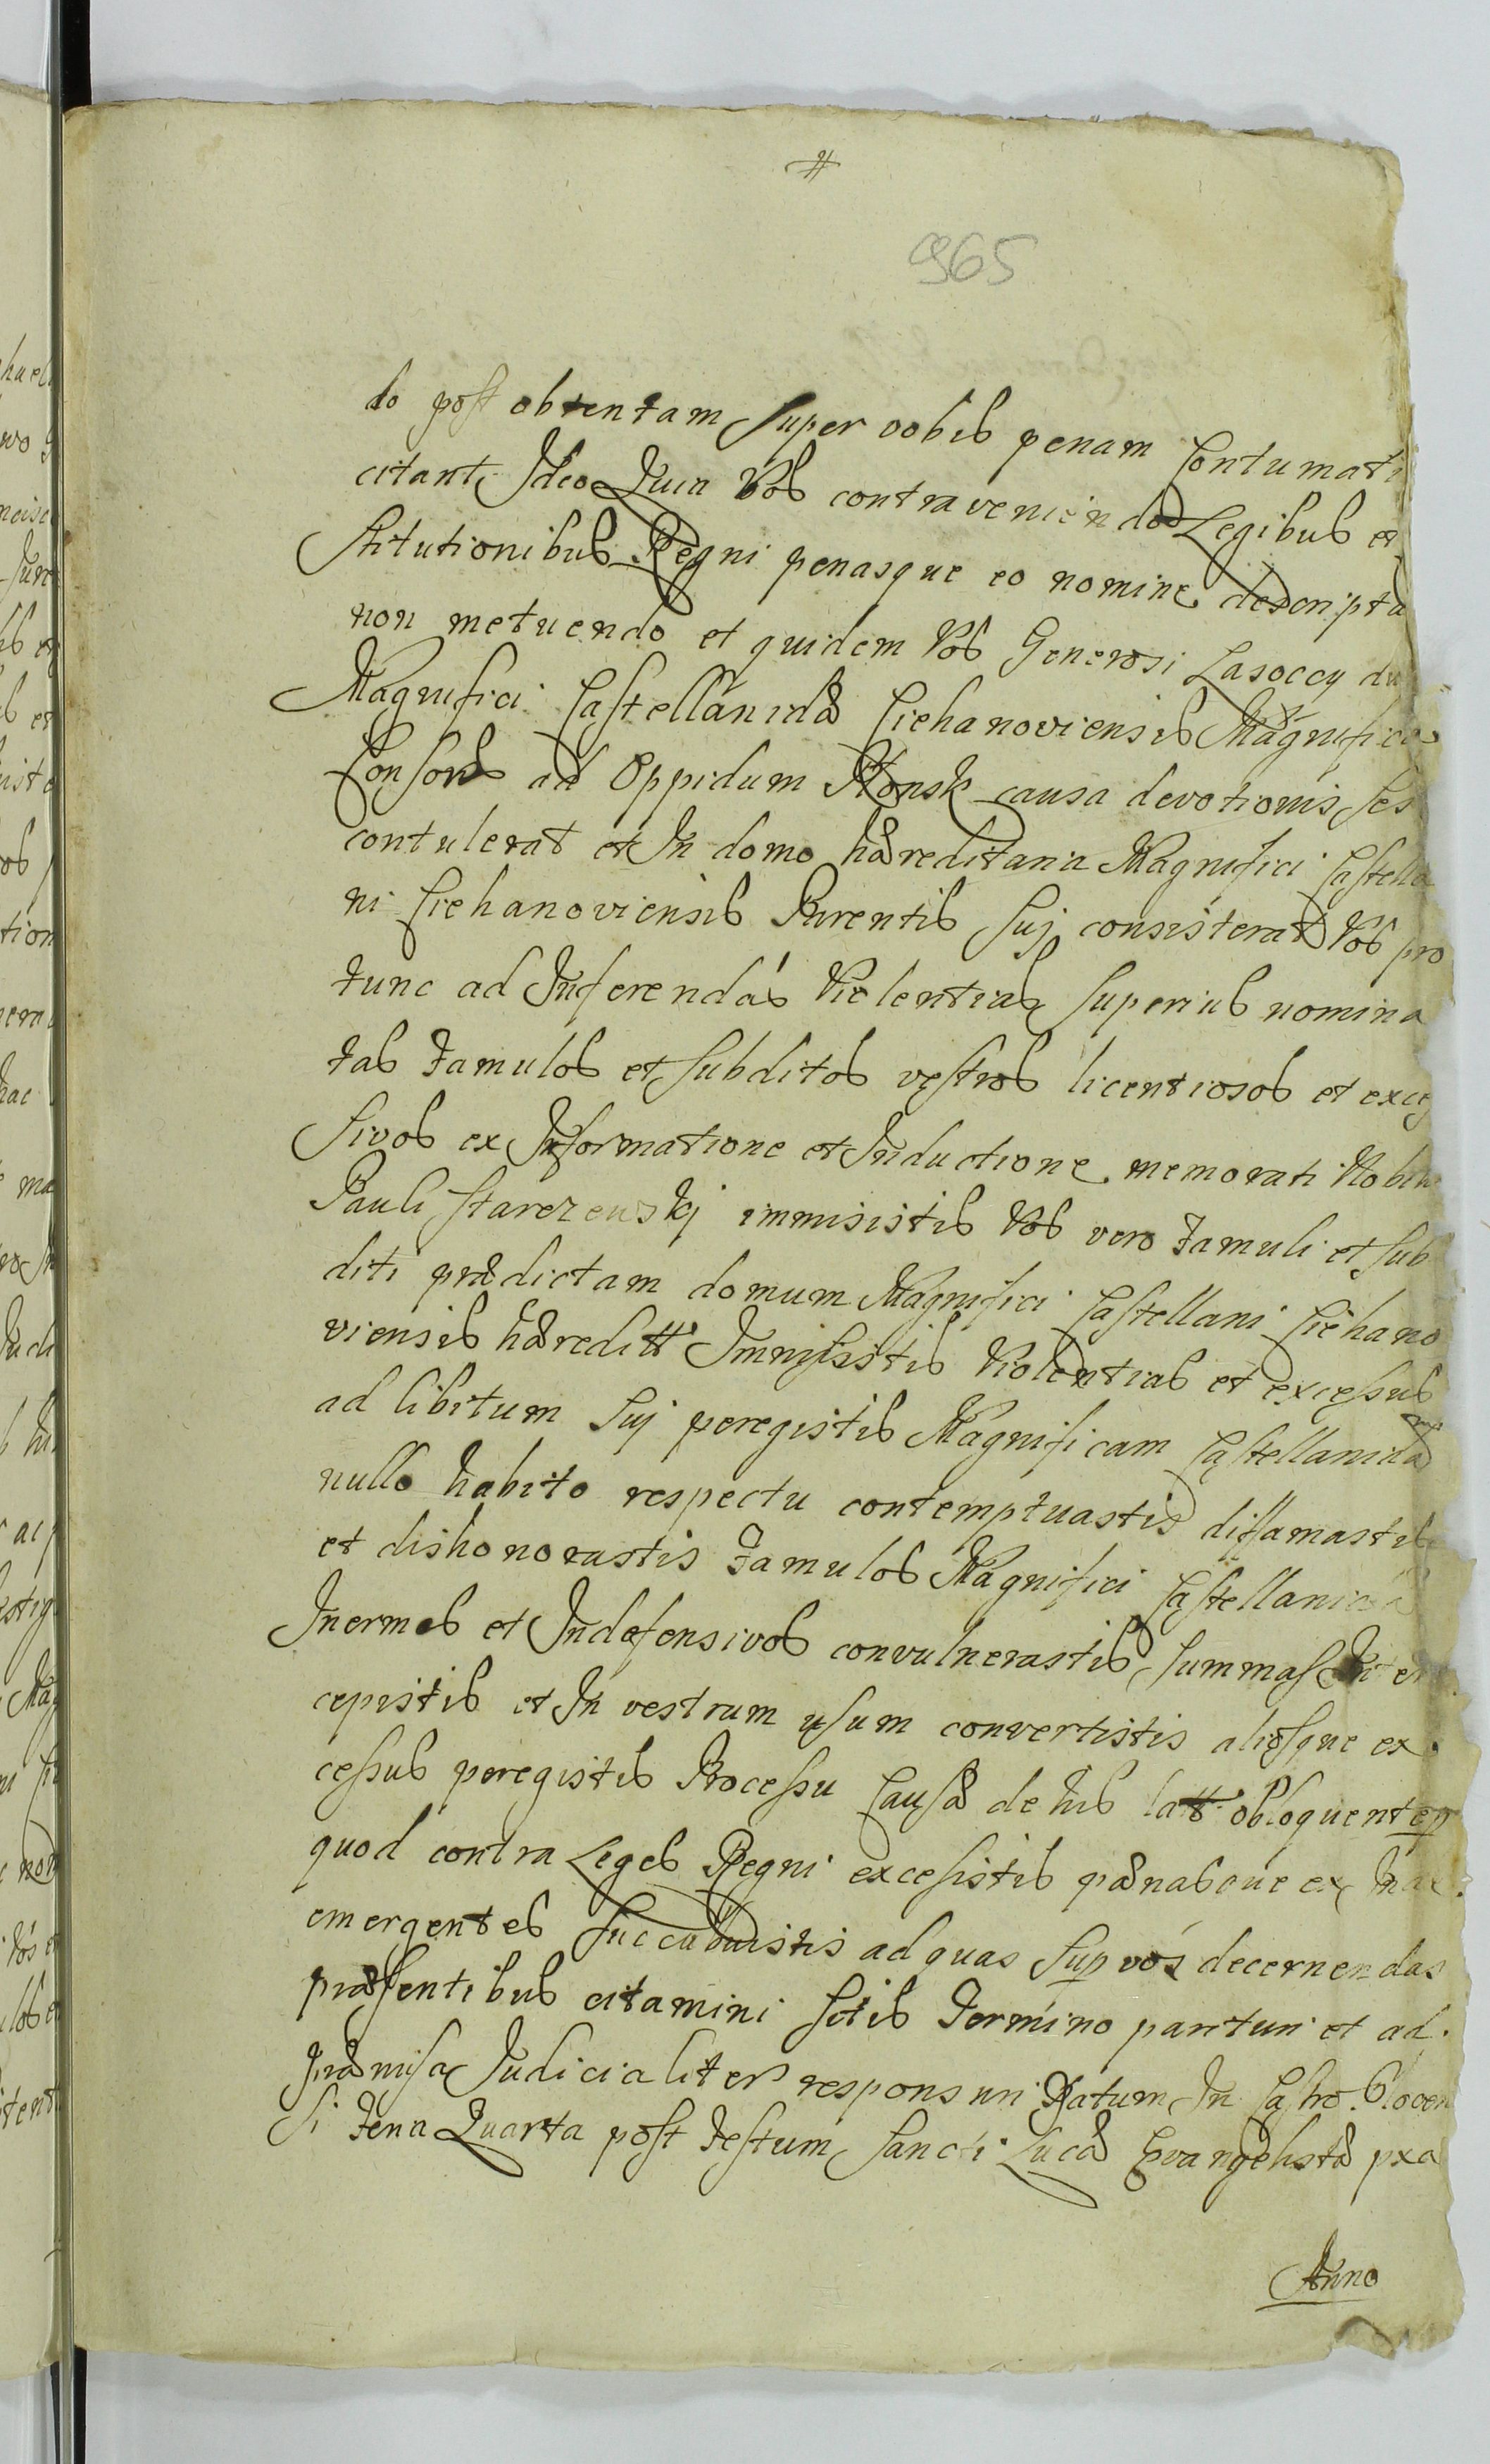 #
965
do post obtentam super vobis penam Contumati
citant, Ideo Quia Vos contraveniendo Legibus et
stitutionibus Regni penasque eo nomine descripta
non metuendo et quidem Vos Generosi Lasoccy du
Magnifici Castellanidæ Ciehanoviensis Magnifica
Consors ad Oppidum Płonsk causa devotionis ses
contulerat et In domo hæreditaria Magnifici Castella
ni Ciehanoviensis Parentis Suj consisterat Vos pro
tunc ad Inferendas Violentias superius nomina
tas Famulos et subditos vestros licentiosos et exces
sivos ex Informatione et Inductione memorati Nobilis
Pauli Starczewskj immisistis Vos vero Famuli et sub
diti prædictam domum Magnifici Castellani Ciehano
viensis hæreditt Immissistis Violentias et excessus
ad libitum Suj peregistis Magnificam Castellanida
nullo habito respectu contemptuastis diffamastis
et dishonorastis Famulos Magnifici Castellanida
Inermes et Indefensivos convulnerastis, summas Inter
cepistis et In vestrum usum convertistis aliosque ex
cessus peregistis Processu Causæ de his latt obloquente
quod contra Leges Regni excesistis pænasque ex
emergentes succubuistis ad quas sup vos decernendas
præsentibus citamini sitis Termino parituri et ad
præmissa Judicialiter responsuri Datum In Castro Plocen
si Feria Quarta post Festum Sancti Lucæ Evangelistæ pxa
Anno